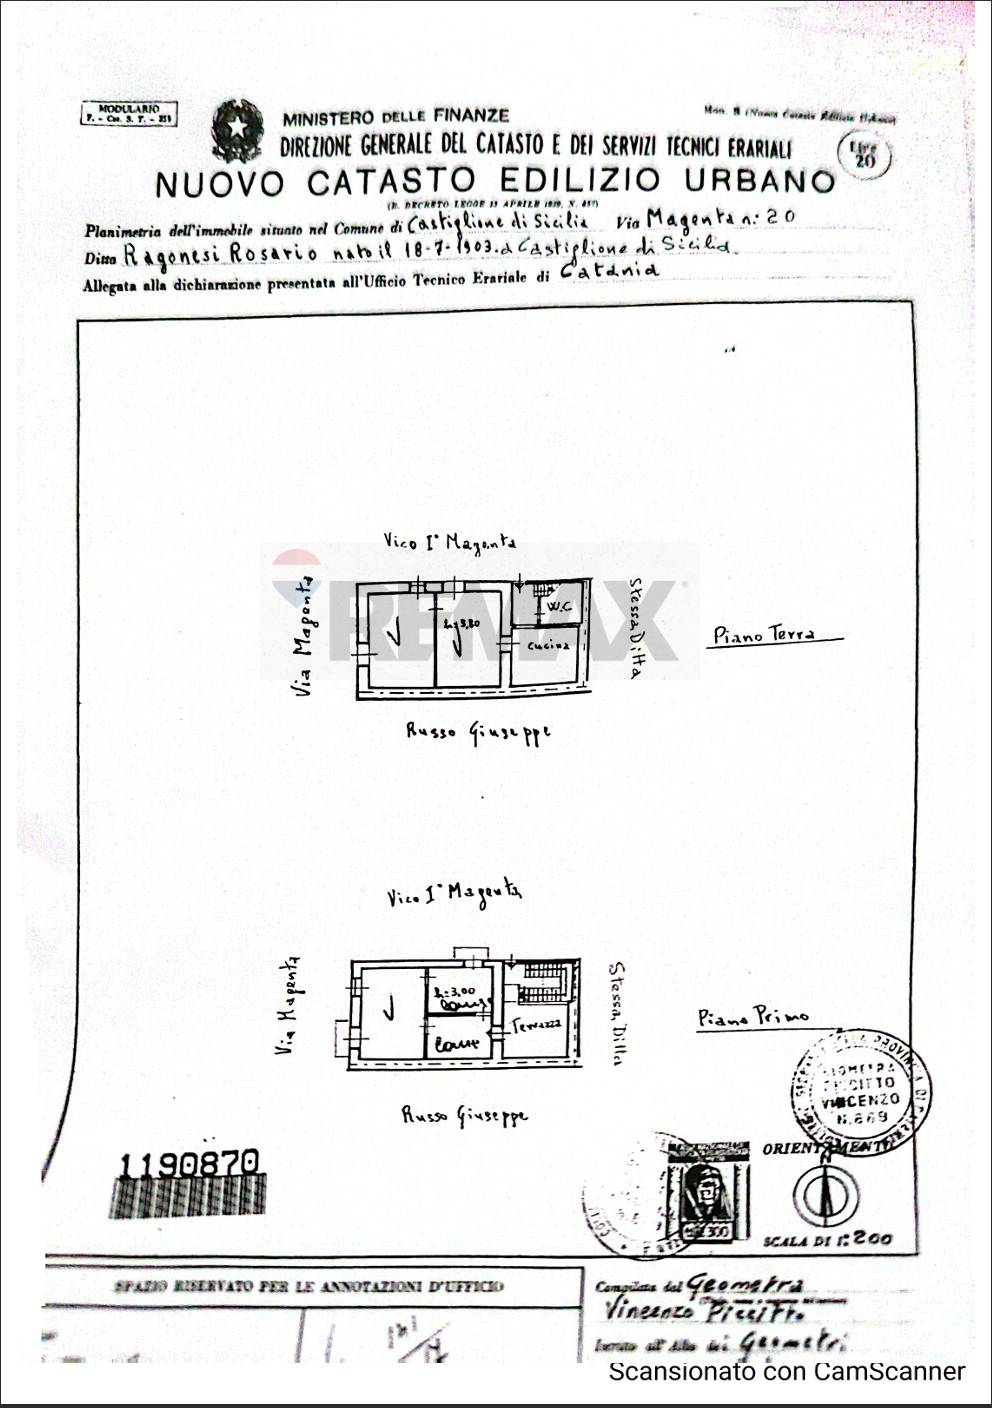 MODULARIO
F. - Cat. S. T. - 315
MINISTERO DELLE FINANZE
DIREZIONE GENERALE DEL CATASTO E DEI SERVIZI TECNICI ERARIALI
Lire
20
NUOVO CATASTO EDILIZIO URBANO
Planimetria dell'immobile situato nel Comune di Castiglione di Sicilia Via Magenta n: 20
Ditta Ragonesi Rosario nato il 18-7-1903 a Castiglione di Sicilia
Allegata alla dichiarazione presentata all'Ufficio Tecnico Erariale di Catania
Vico I° Magenta
Via Magenta
Stessa Ditta
REMAX
W.C
h=3,80
cucina
Piano Terra
Russo Giuseppe
Vico I° Magenta
Via Magenta
Stessa Ditta
h=3,00
Terrazza
Piano Primo
Russo Giuseppe
GEOMETRA
VINCENZO
N. 669
1190870
ORIENTAMENTO
N
300
SCALA DI 1: 200
SPAZIO RISERVATO PER LE ANNOTAZIONI D'UFFICIO
Compilata dal Geometra
Vincenzo
Iscritto all'Albo dei Geometri
Scansionato con CamScanner